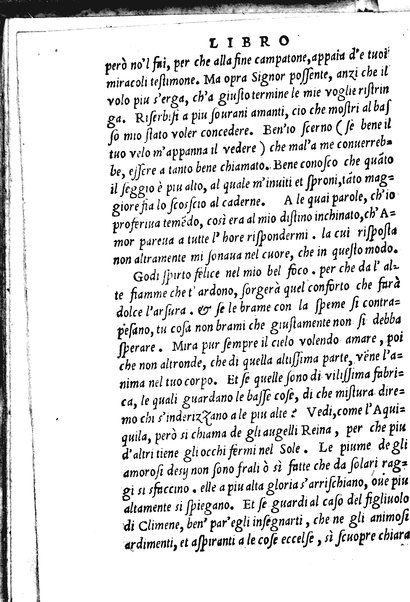 LIBRO
però no'l fai, per che alla fine campatone, appaia d'e tuoi
miracoli testimone. Ma opra Signor possente, anzi che il
volo piu s'erga, ch'a giusto termine le mie voglie ristrin
ga. Riserbisi a piu sourani amanti, cio che mostri al bas
so mio stato voler concedere. Ben'io scerno (se bene il
tuo velo m'appanna il vedere) che mal'a me conuerreb-
be, essere a tanto bene chiamato. Bene conosco che quāto
il seggio è piu alto, al quale m'inuiti et sproni, tāto mag-
giore fia lo scoscio al caderne. A le quai parole, ch'io
proferiua temēdo, così era al mio distino inchinato, ch'A-
mor pareua a tutte l'hore rispondermi. la cui risposta
non altramente mi sonaua nel cuore, che in questo modo.
Godi spirto felice nel mio bel foco. per che da l'al-
te fiamme che t'ardono, sorgerà quel conforto che farà
dolce l'arsura. & se le brame con la speme si contra-
pesano, tu cosa non brami che giustamente non si debba
sperare. Mira pur sempre il cielo volendo amare, poi
che non altronde, che di quella altissima parte, vēne l'a-
nima nel tuo corpo. Et se quelle sono di vilissima fabri-
ca, le quali guardano le basse cose, di che mistura dire-
mo chi s'inderizzano a le piu alte? Vedi, come l'Aqui-
quila, però si chiama de gli augelli Reina, per che piu
d'altri tiene gli occhi fermi nel Sole. Le piume de gli
amorosi desij non sono frali ò sì fatte che da solari rag-
gi si sfaccino. elle a piu alta gloria s'arrischiano, oue piu
altamente si spiegano. Et se guardi al caso del figliuolo
di Climene, ben' par'egli insegnarti, che ne gli animosi
ardimenti, et aspiranti a le cose eccelse, sì scuopre chiara